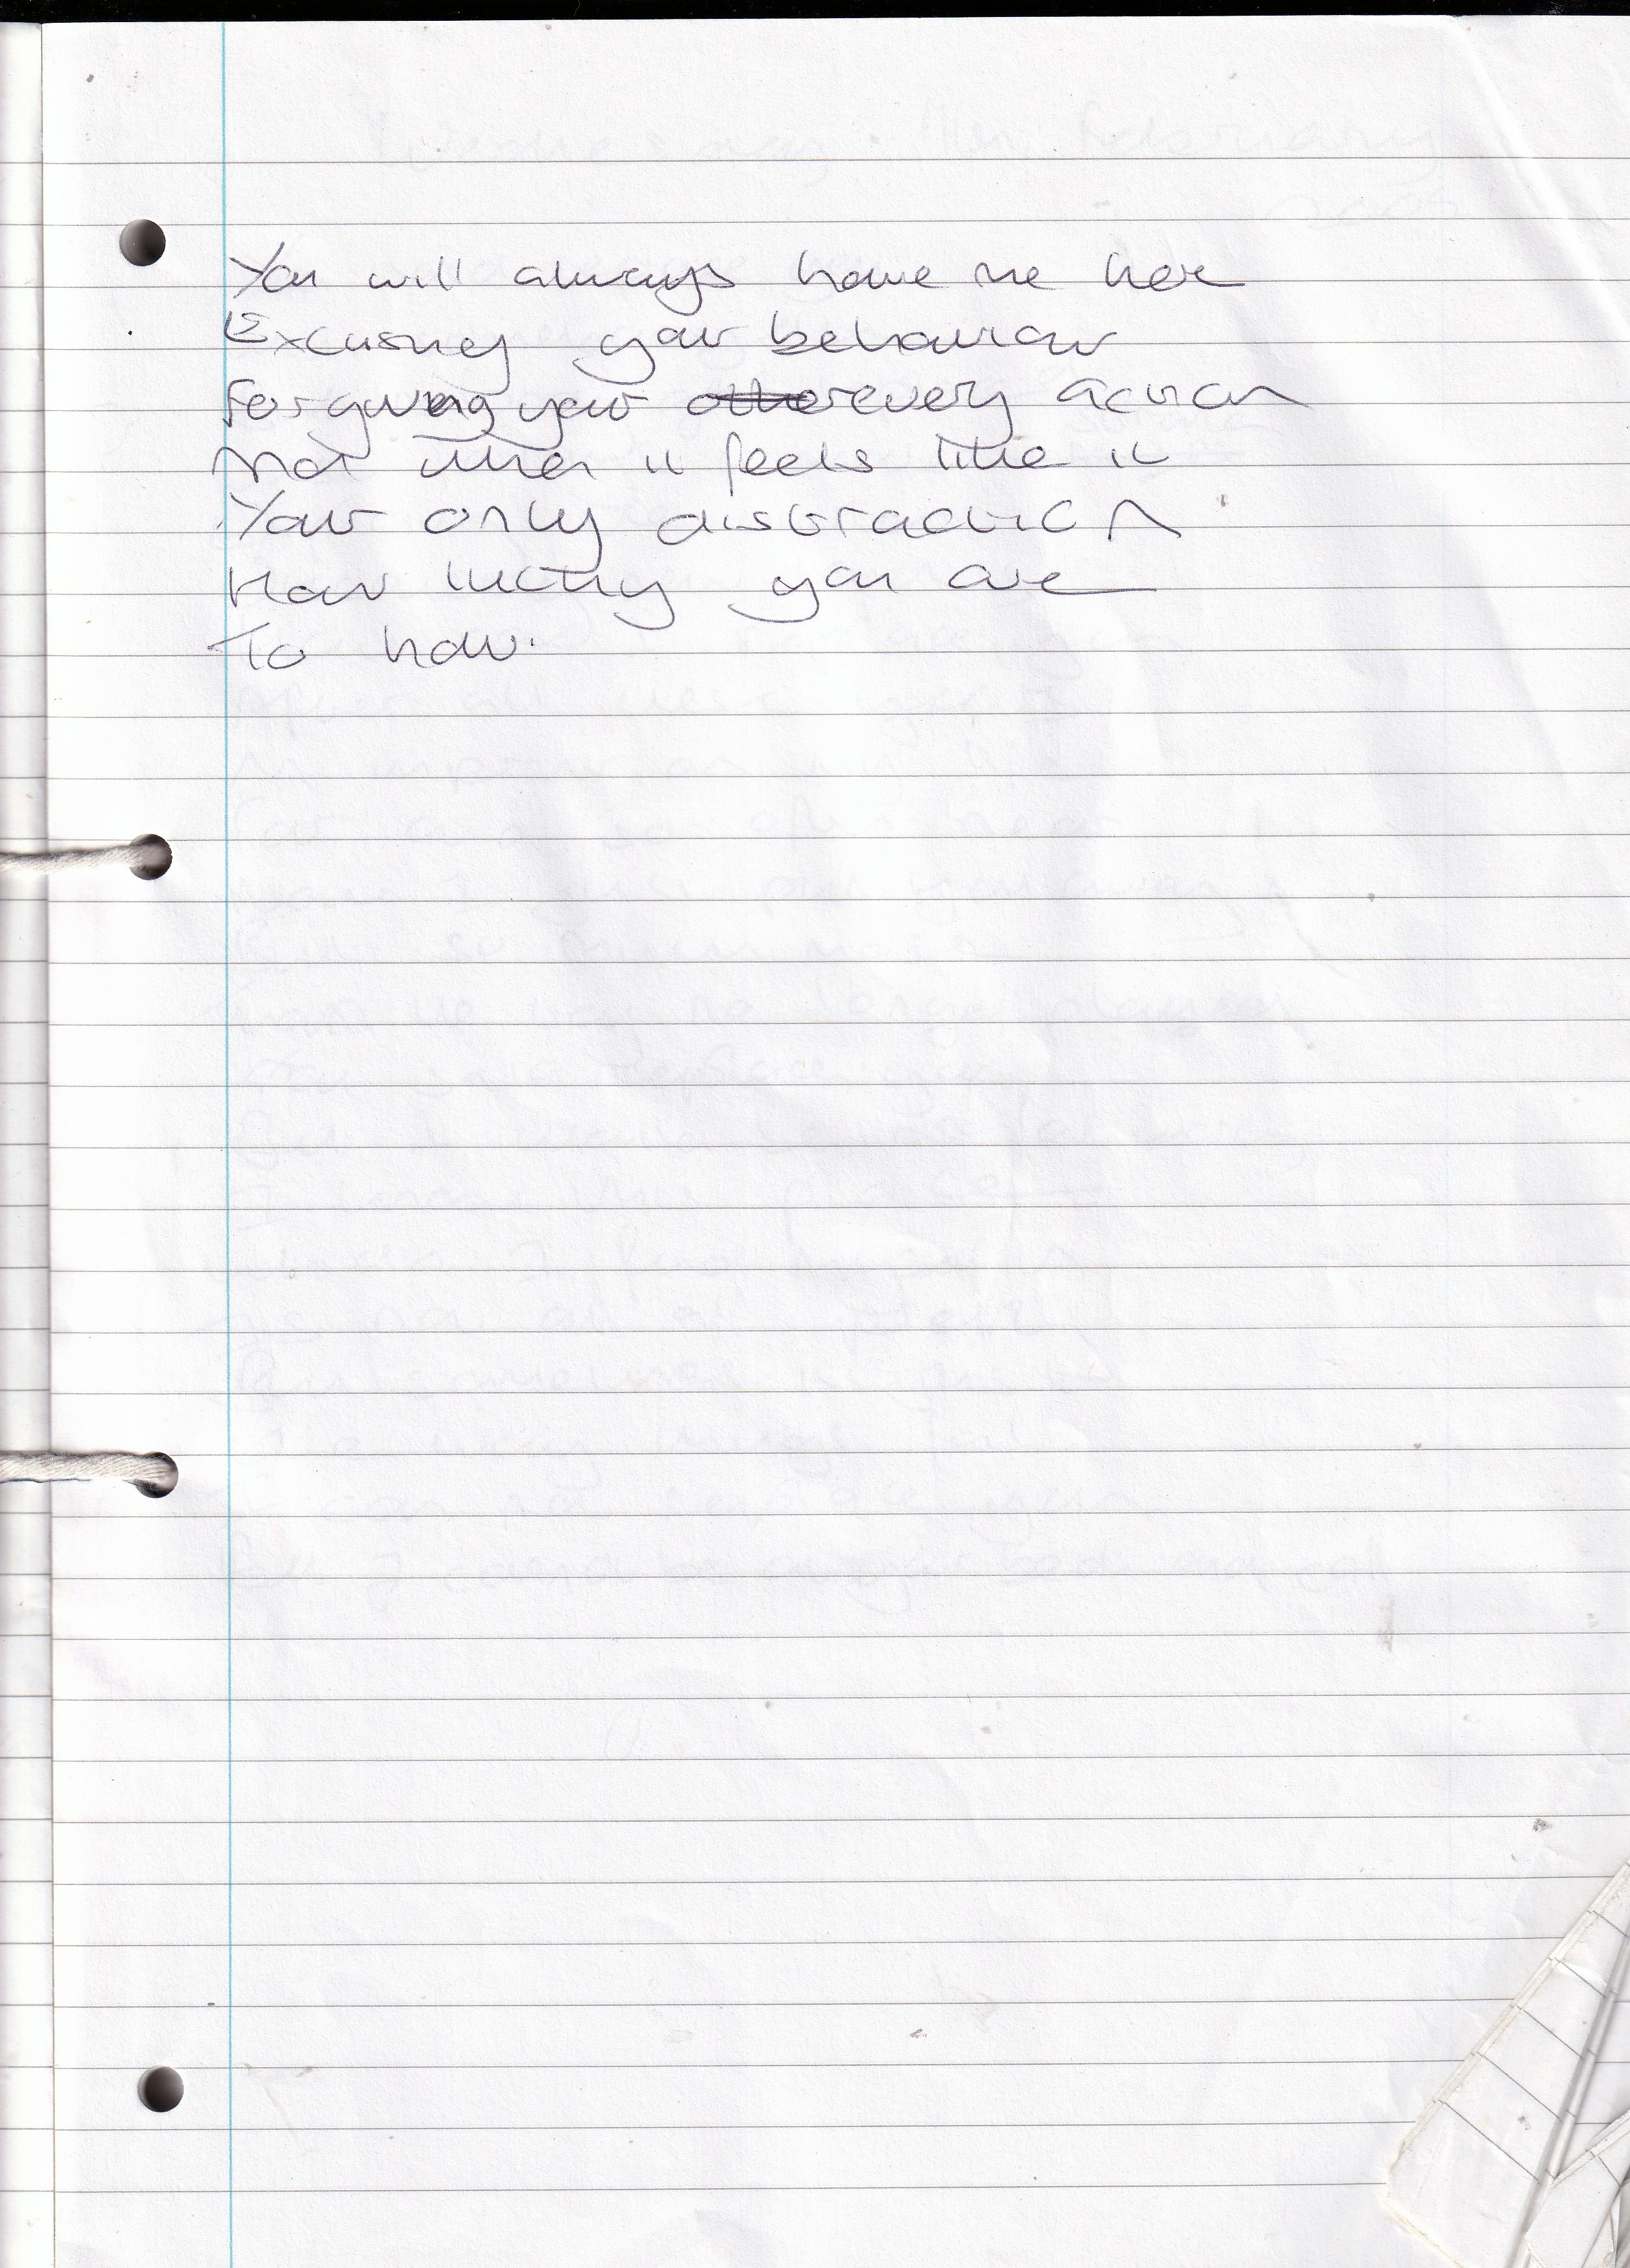 You will always have me here
Excusing your behaviour
Forgiving your other every action
And when it feels like it
Your only distraction
How lucky you are
To